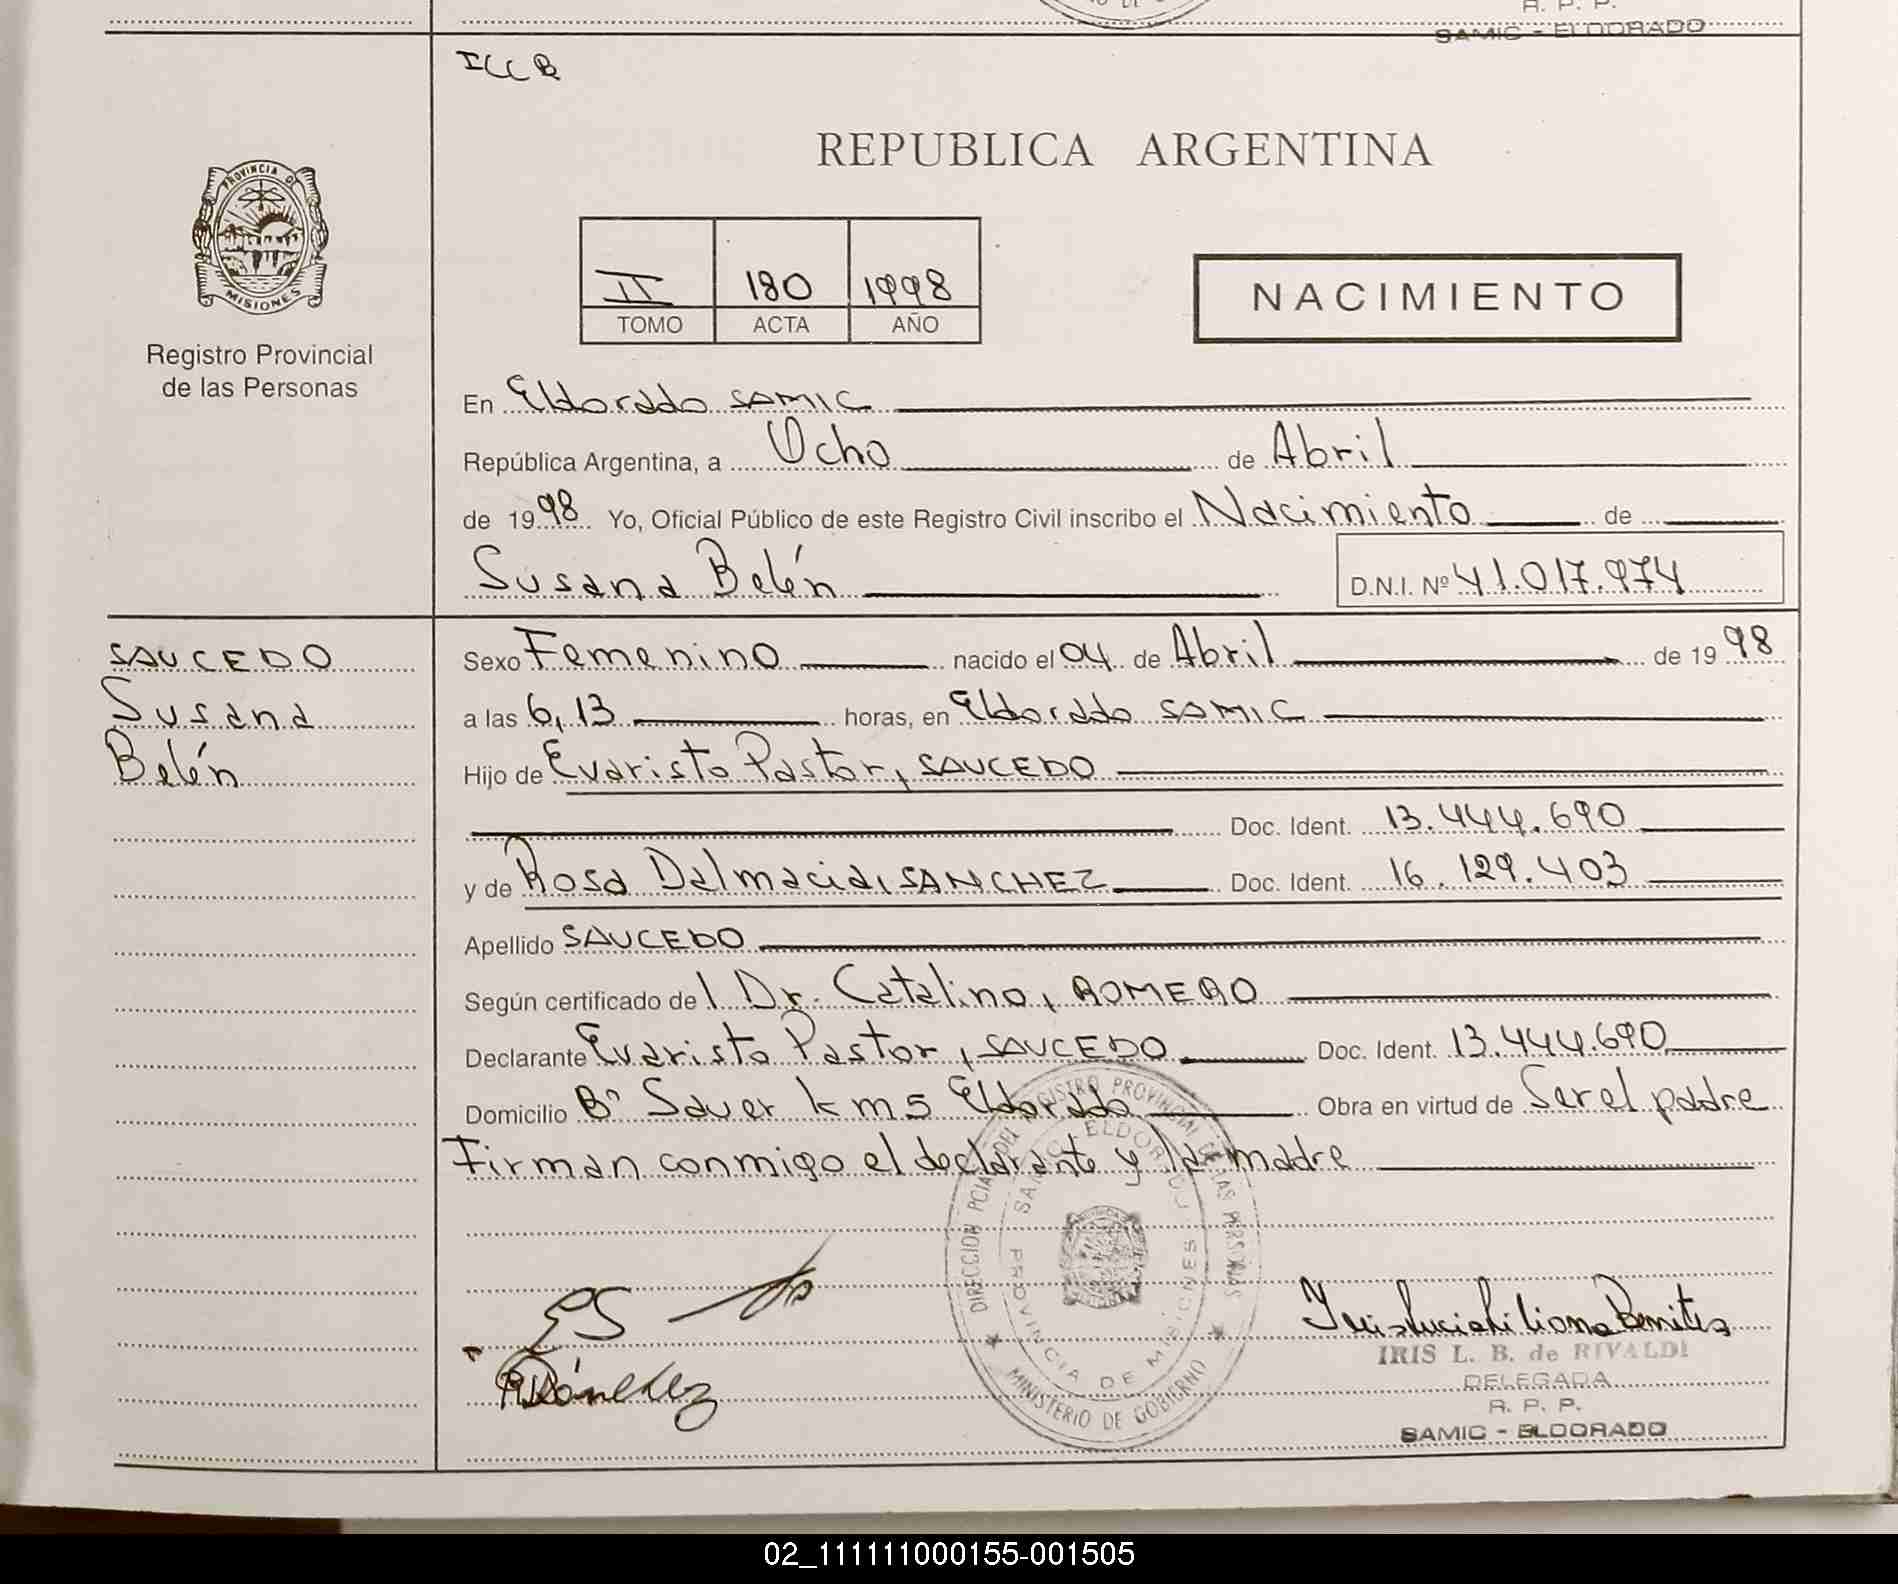 R. P. P.
SAMIC - ELDORADO
ILLB
REPUBLICA ARGENTINA
PROVINCIA DE
MISIONES
Registro Provincial
de las Personas
II 180 1998
TOMO ACTA AÑO
NACIMIENTO
En Eldorado SAMIC
República Argentina, a Ocho de Abril
de 1998 Yo, Oficial Público de este Registro Civil inscribo el Nacimiento de
Susana Belén D.N.I. Nº 41.017.974
SAUCEDO
Susana
Belén
Sexo Femenino nacido el 04 de Abril de 1998
a las 6,13 horas, en Eldorado SAMIC
Hijo de Evaristo Pastor, SAUCEDO
Doc. Ident. 13.444.690
y de Rosa Dalmacia, SANCHEZ Doc. Ident. 16.129.403
Apellido SAUCEDO
Según certificado de l Dr. Catalino, ROMERO
Declarante Evaristo Pastor, SAUCEDO Doc. Ident. 13.444.690
Domicilio Bº Sauer km 5 Eldorado Obra en virtud de Ser el padre
Firman conmigo el declarante y la madre
DIRECCION PCIAL DEL REGISTRO PROVINCIAL DE LAS PERSONAS
SAMIC - ELDORADO
PROVINCIA DE MISIONES
MINISTERIO DE GOBIERNO
ES
RDSánchez
Iris Lucia Liliana Benitez
IRIS L. B. de RIVALDI
DELEGADA
R. P. P.
SAMIC - ELDORADO
02_111111000155-001505